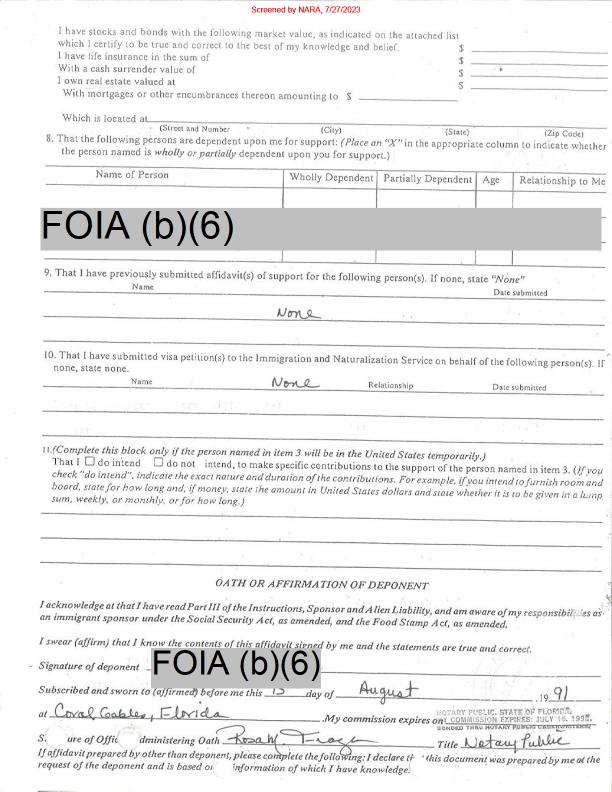 Screened by NARA, 7/27/2023
I have stocks and bonds with the following market value, as indicated on the attached list
which I certify to be true and correct to the best of my knowledge and belief. $
I have life insurance in the sum of $
With a cash surrender value of $
I own real estate valued at $
With mortgages or other encumbrances thereon amounting to $
Which is located at
(Street and Number (City) (State) (Zip Code)
8. That the following persons are dependent upon me for support: (Place an "X" in the appropriate column to indicate whether
the person named is wholly or partially dependent upon you for support.)
Name of Person Wholly Dependent Partially Dependent Age Relationship to Me
FOIA (b)(6)
9. That I have previously submitted affidavit(s) of support for the following person(s). If none, state "None"
Name Date submitted
None
10. That I have submitted visa petition(s) to the Immigration and Naturalization Service on behalf of the following person(s). If
none, state none.
Name None Relationship Date submitted
11.(Complete this block only if the person named in item 3 will be in the United States temporarily.)
That I ☐ do intend ☐ do not intend, to make specific contributions to the support of the person named in item 3. (If you
check "do intend", indicate the exact nature and duration of the contributions. For example, if you intend to furnish room and
board, state for how long and, if money, state the amount in United States dollars and state whether it is to be given in a lump
sum, weekly, or monthly, or for how long.)
OATH OR AFFIRMATION OF DEPONENT
I acknowledge at that I have read Part III of the Instructions, Sponsor and Alien Liability, and am aware of my responsibil es as
an immigrant sponsor under the Social Security Act, as amended, and the Food Stamp Act, as amended.
I swear (affirm) that I know the contents of this affidavit signed by me and the statements are true and correct.
Signature of deponent FOIA (b)(6)
Subscribed and sworn to (affirmed) before me this day of August 19 91
at Coral Gables, Florida My commission expires on NOTARY PUBLIC, STATE OF FLORIDA.
COMMISSION EXPIRES: JULY 16,
BONDED THRU NOTARY PUBLIC UNDERWRITERS.
S. ure of Offic dministering Oath Rosa M Title Notary Public
If affidavit prepared by other than deponent, please complete the following: I declare th this document was prepared by me at the
request of the deponent and is based o information of which I have knowledge.